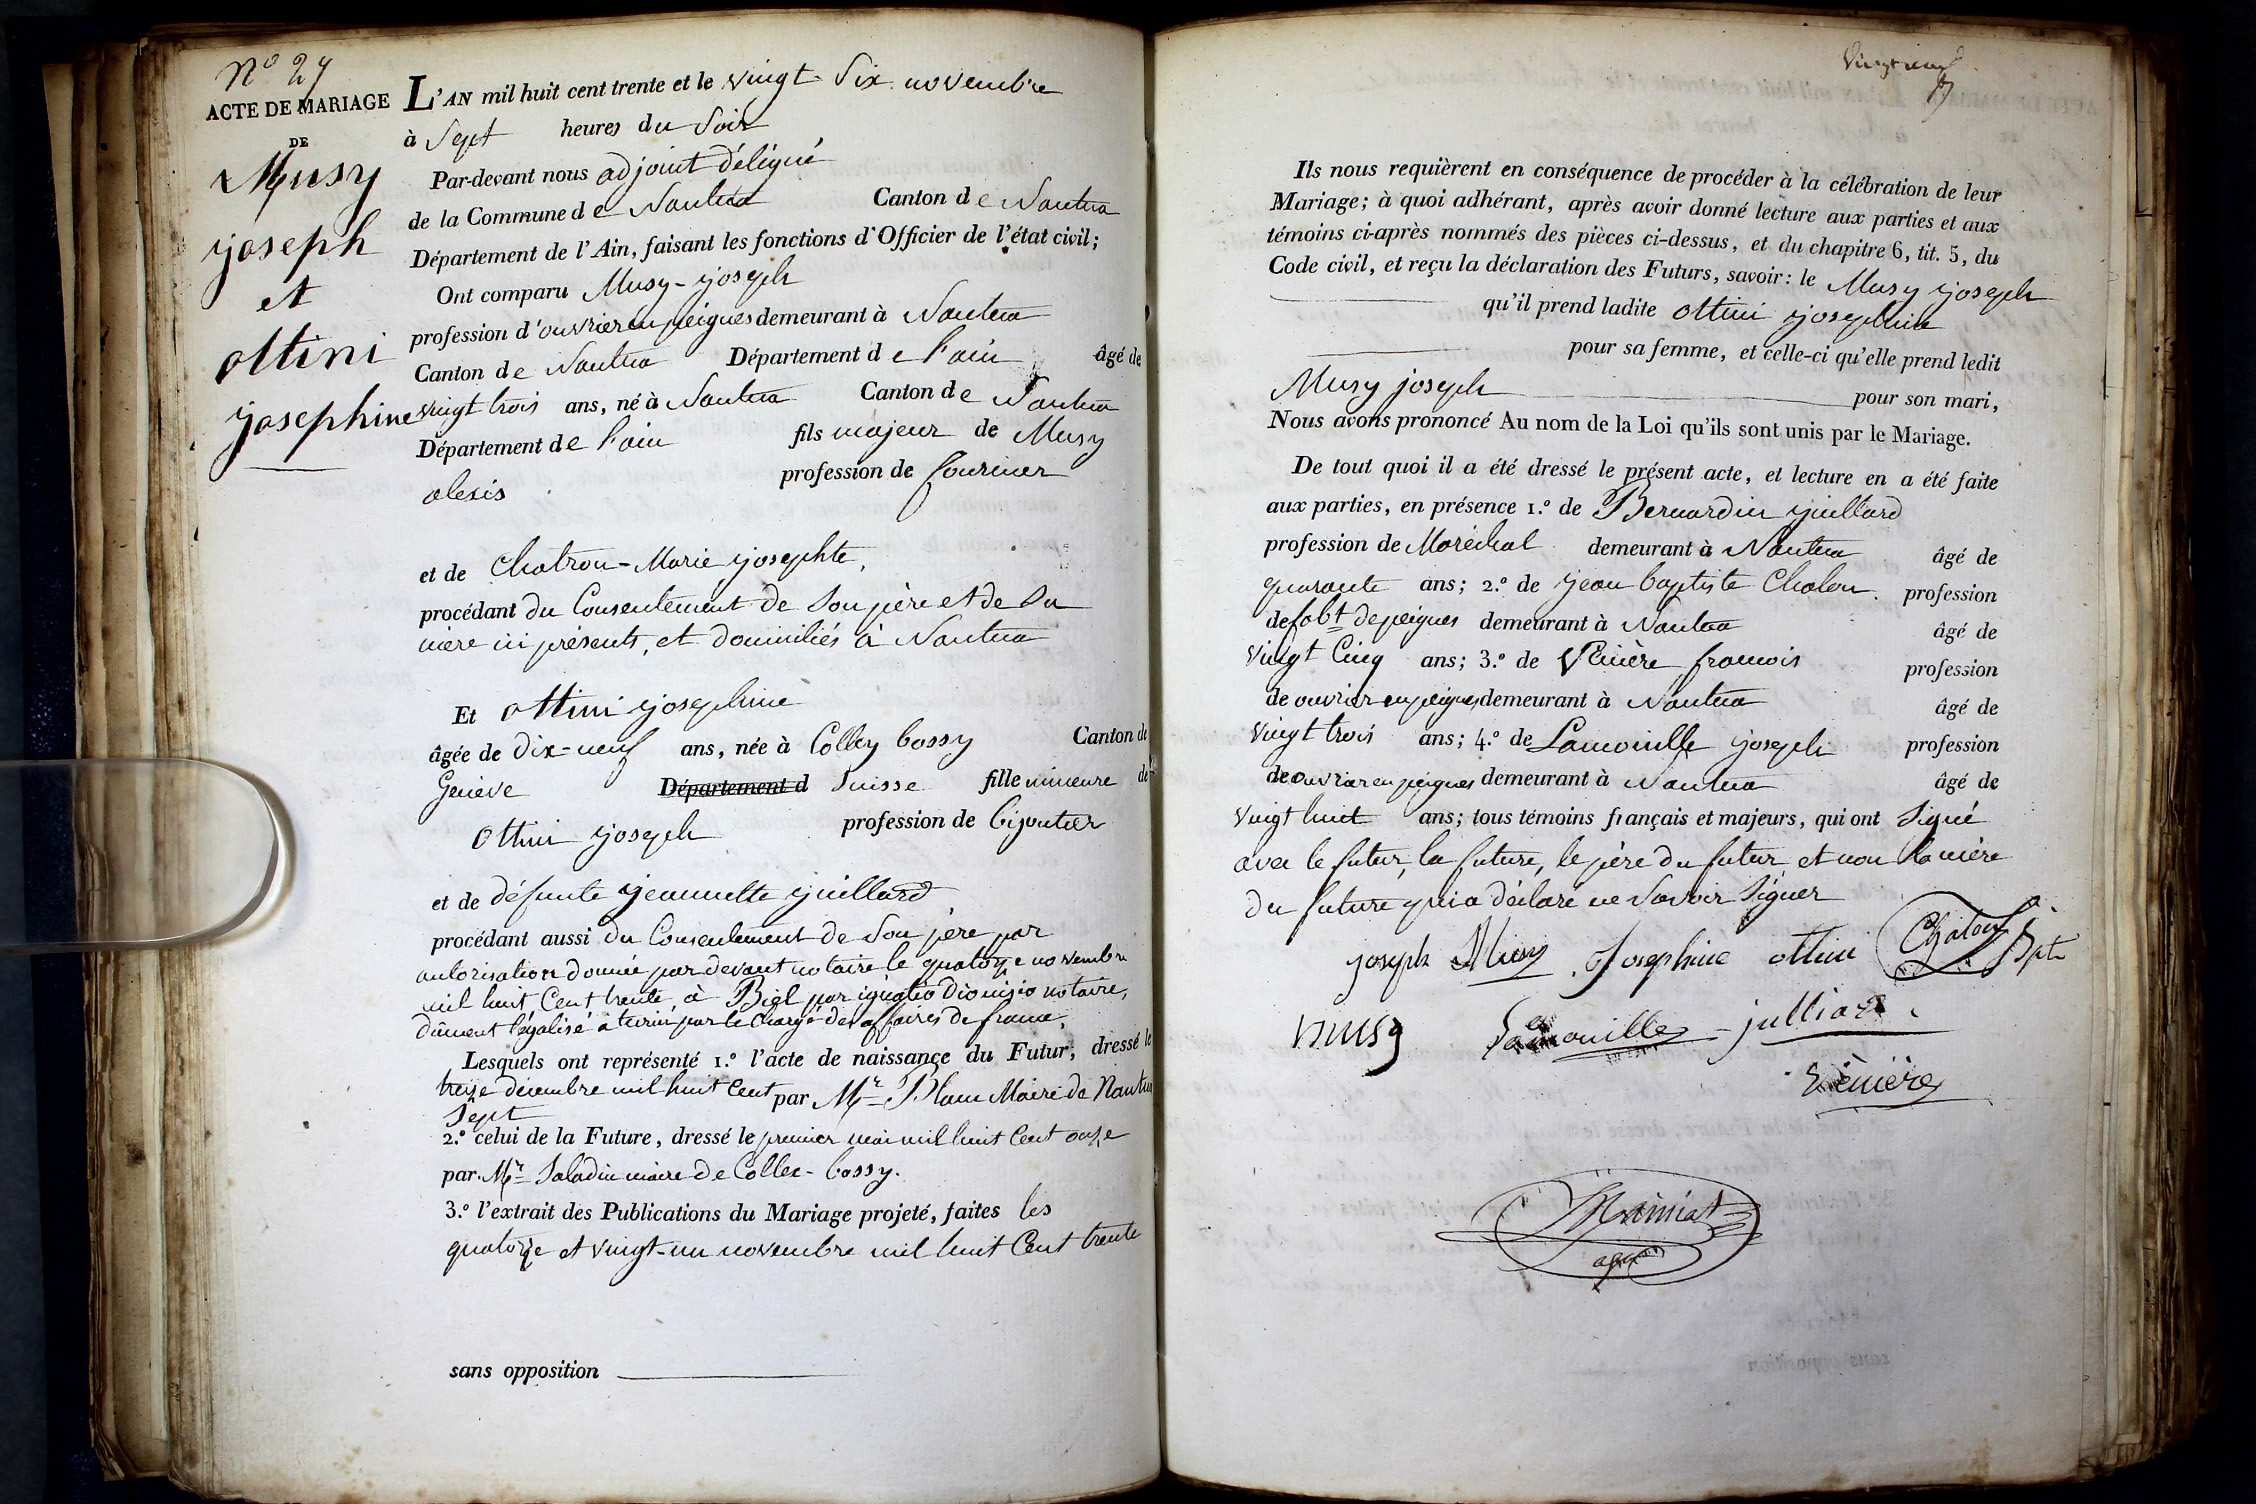 N.º 27
ACTE DE MARIAGE
DE
Musy
joseph
et
ottini
josephine
L'AN mil huit cent trente et le vingt-Six novembre
à Sept heures du Soir
Par-devant nous adjoint délégué
de la Commune de Nantua Canton de Nantua
Département de l'Ain, faisant les fonctions d'Officier de l'état civil;
Ont comparu Musy-joseph
profession d'ouvrier en peignes demeurant à Nantua
Canton de Nantua Département de l'ain âgé de
vingt trois ans, né à Nantua Canton de Nantua
Département de l'ain fils majeur de Musy
alexis profession de
et de Chatron-Marie josephte,
procédant du Consentement de Son père et de Sa
mère ici présents, et domiciliés à Nantua
Et ottini josephine
âgée de dix-neuf ans, née à Colley bossy Canton de
Genève Département d Suisse fille mineure de
Ottini joseph profession de bijoutier
et de défunte jeannette juillard
procédant aussi du Consentement de Son père par
autorisation donnée par devant notaire le quatorze novembre
mil huit Cent trente, à Biel par ignatio Dionisio notaire,
dûment légalisé à turin par le chargé des affaires de france,
Lesquels ont représenté 1.º l'acte de naissance du Futur, dressé le
treize décembre mil huit Cent par Mr. Blanc Maire de Nantua
Sept
2.º celui de la Future, dressé le premier mai mil huit Cent onze
par Mr. Saladin maire de Collex-bossy.
3.º l'extrait des Publications du Mariage projeté, faites les
quatorze et vingt-un novembre mil huit Cent trente
sans opposition
Vingt neuf
Ils nous requièrent en conséquence de procéder à la célébration de leur
Mariage; à quoi adhérant, après avoir donné lecture aux parties et aux
témoins ci-après nommés des pièces ci-dessus, et du chapitre 6, tit. 5, du
Code civil, et reçu la déclaration des Futurs, savoir: le Musy joseph
qu'il prend ladite ottini josephine
pour sa femme, et celle-ci qu'elle prend ledit
Musy joseph pour son mari,
Nous avons prononcé Au nom de la Loi qu'ils sont unis par le Mariage.
De tout quoi il a été dressé le présent acte, et lecture en a été faite
aux parties, en présence 1.º de Bernardin juillard
profession de Maréchal demeurant à Nantua âgé de
quarante ans; 2.º de jean baptiste Chalon profession
de fabt de peignes demeurant à Nantua âgé de
vingt Cinq ans; 3.º de françois profession
de ouvrier en peignes demeurant à Nantua âgé de
vingt trois ans; 4.º de Lamouille joseph profession
de ouvrier en peignes demeurant à Nantua âgé de
vingt huit ans; tous témoins français et majeurs, qui ont Signé
avec le futur, la future, le père du futur et non la mère
du future qui a déclaré ne Savoir Signer
joseph Musy Josephine ottini Chalon Bpte
musy Lamouille julliard